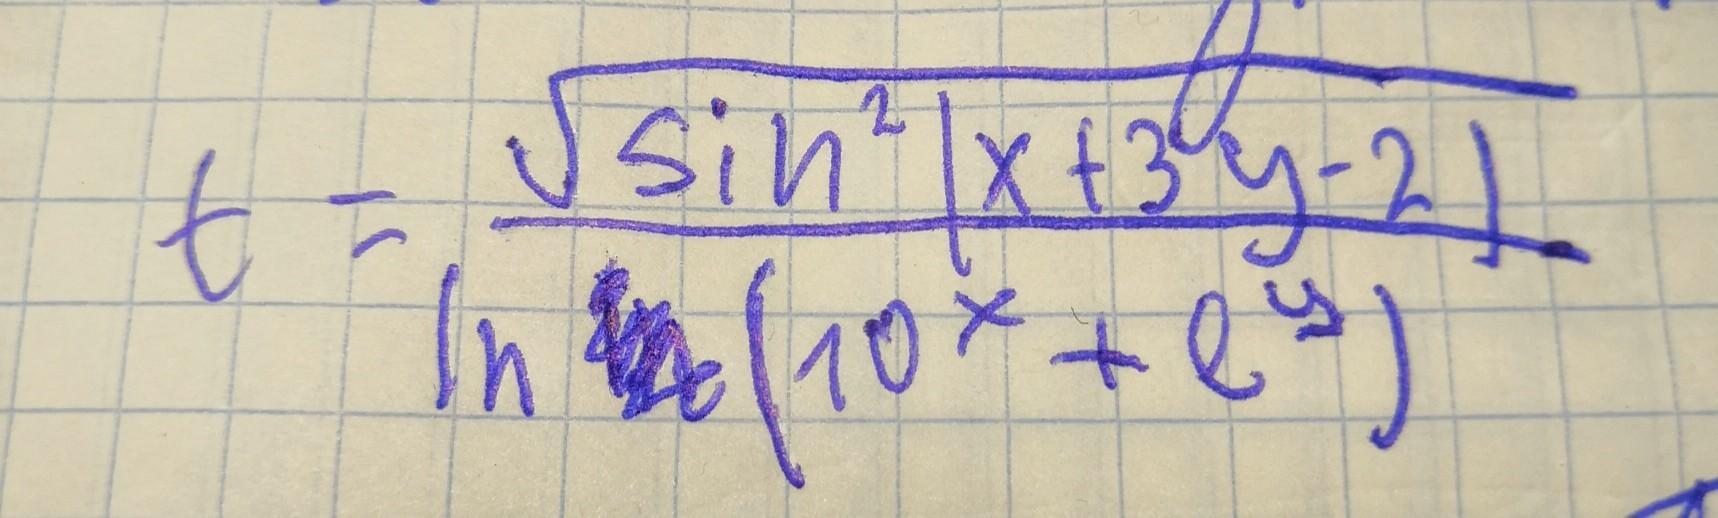 t = √(sin²|x+3y-2|) / ln(10^x + e^y)